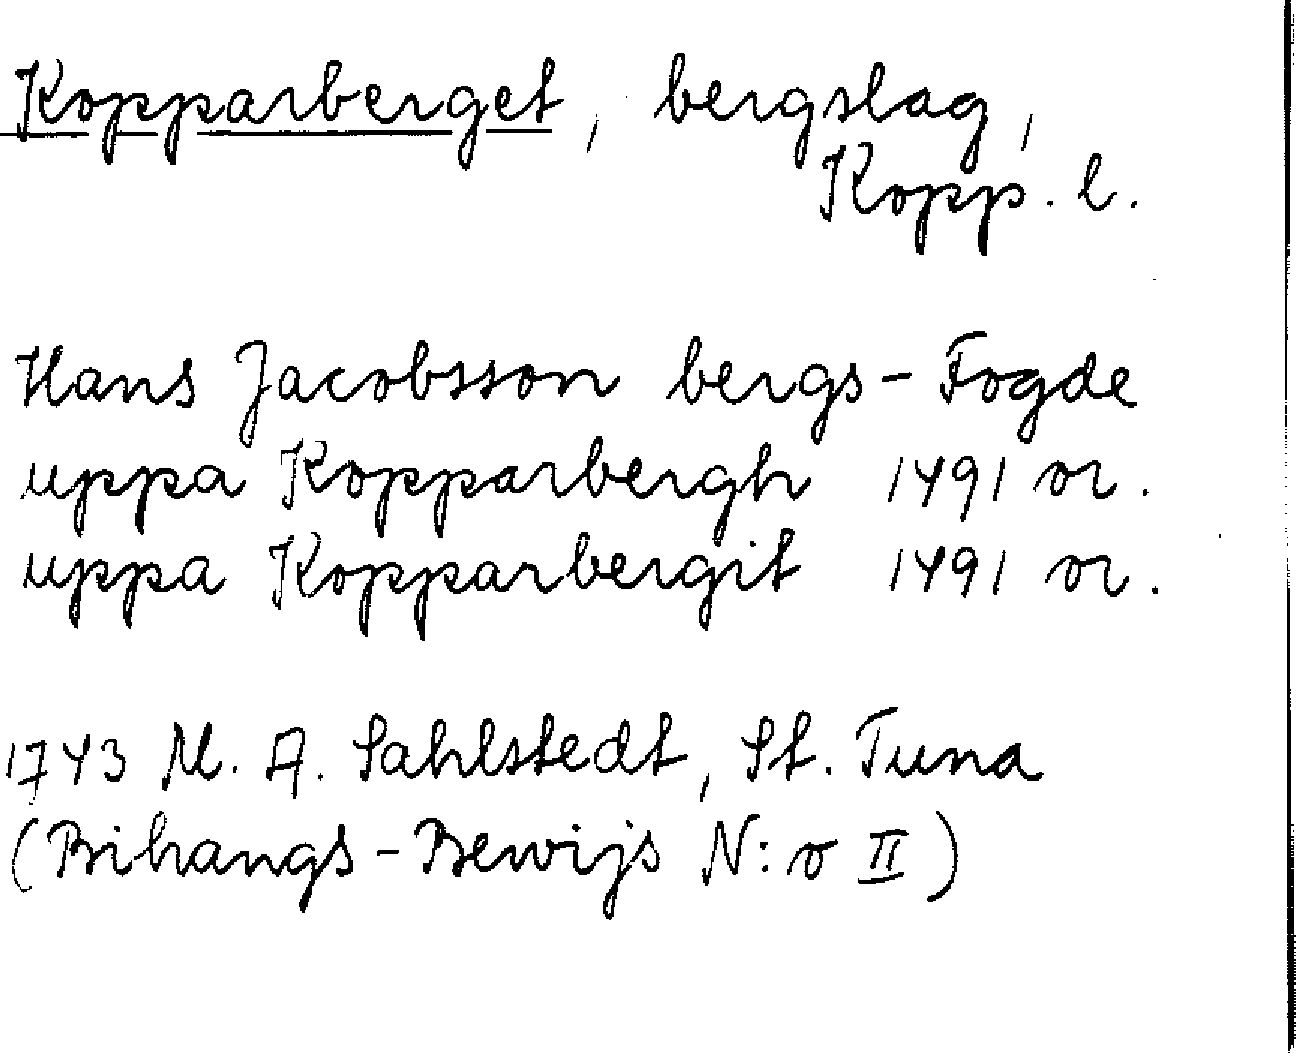 Kopparberget, bergslag,
Kopp. l.
Hans Jacobsson bergs-Fogde
uppa Kopparbergh 1491 or.
uppa Kopparbergit 1491 or.
1743 M. A. Sahlstedt, St. Tuna
(Bihangs-Bewijs N:o II)